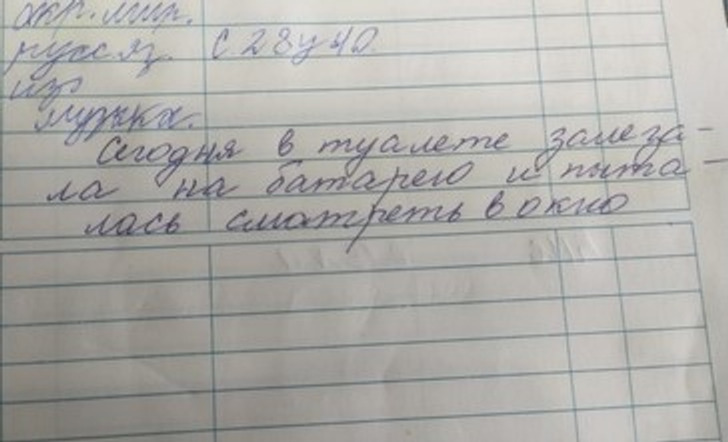 окр. мир.
русс.яз. С 28 у 40
изо
музыка.
Сегодня в туалете залеза-
ла на батарею и пыта-
лась смотреть в окно